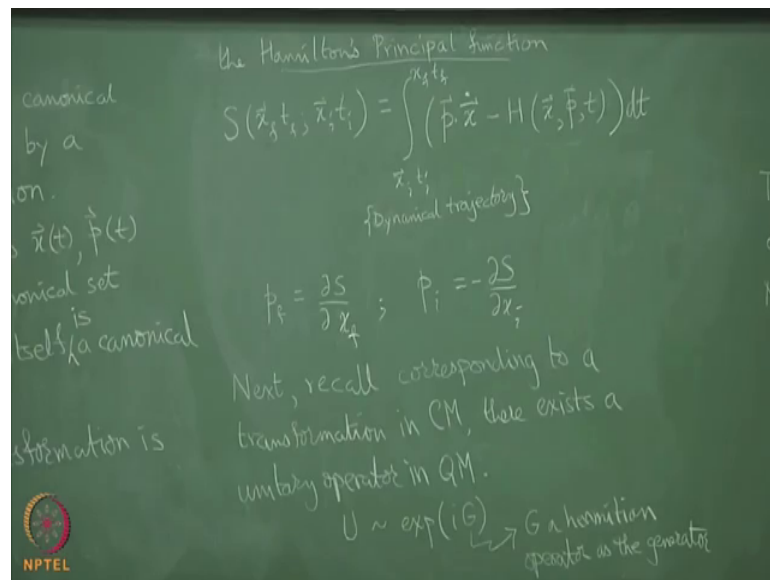 canonical
by a
on.
x⃗(t), p⃗(t)
onical set
is
itself ∧ a canonical
sformation is
the Hamilton's Principal function
S(x⃗_f t_f, x⃗_i t_i) = ∫_{x⃗_i t_i}^{x_f t_f} (p⃗·ẋ⃗ − H(x⃗, p⃗, t)) dt
{Dynamical trajectory}
p_f = ∂S/∂x_f ; p_i = −∂S/∂x_i
Next, recall corresponding to a
transformation in CM, there exists a
unitary operator in QM.
U ~ exp(iG) → G a hermitian
operator as the generator
NPTEL